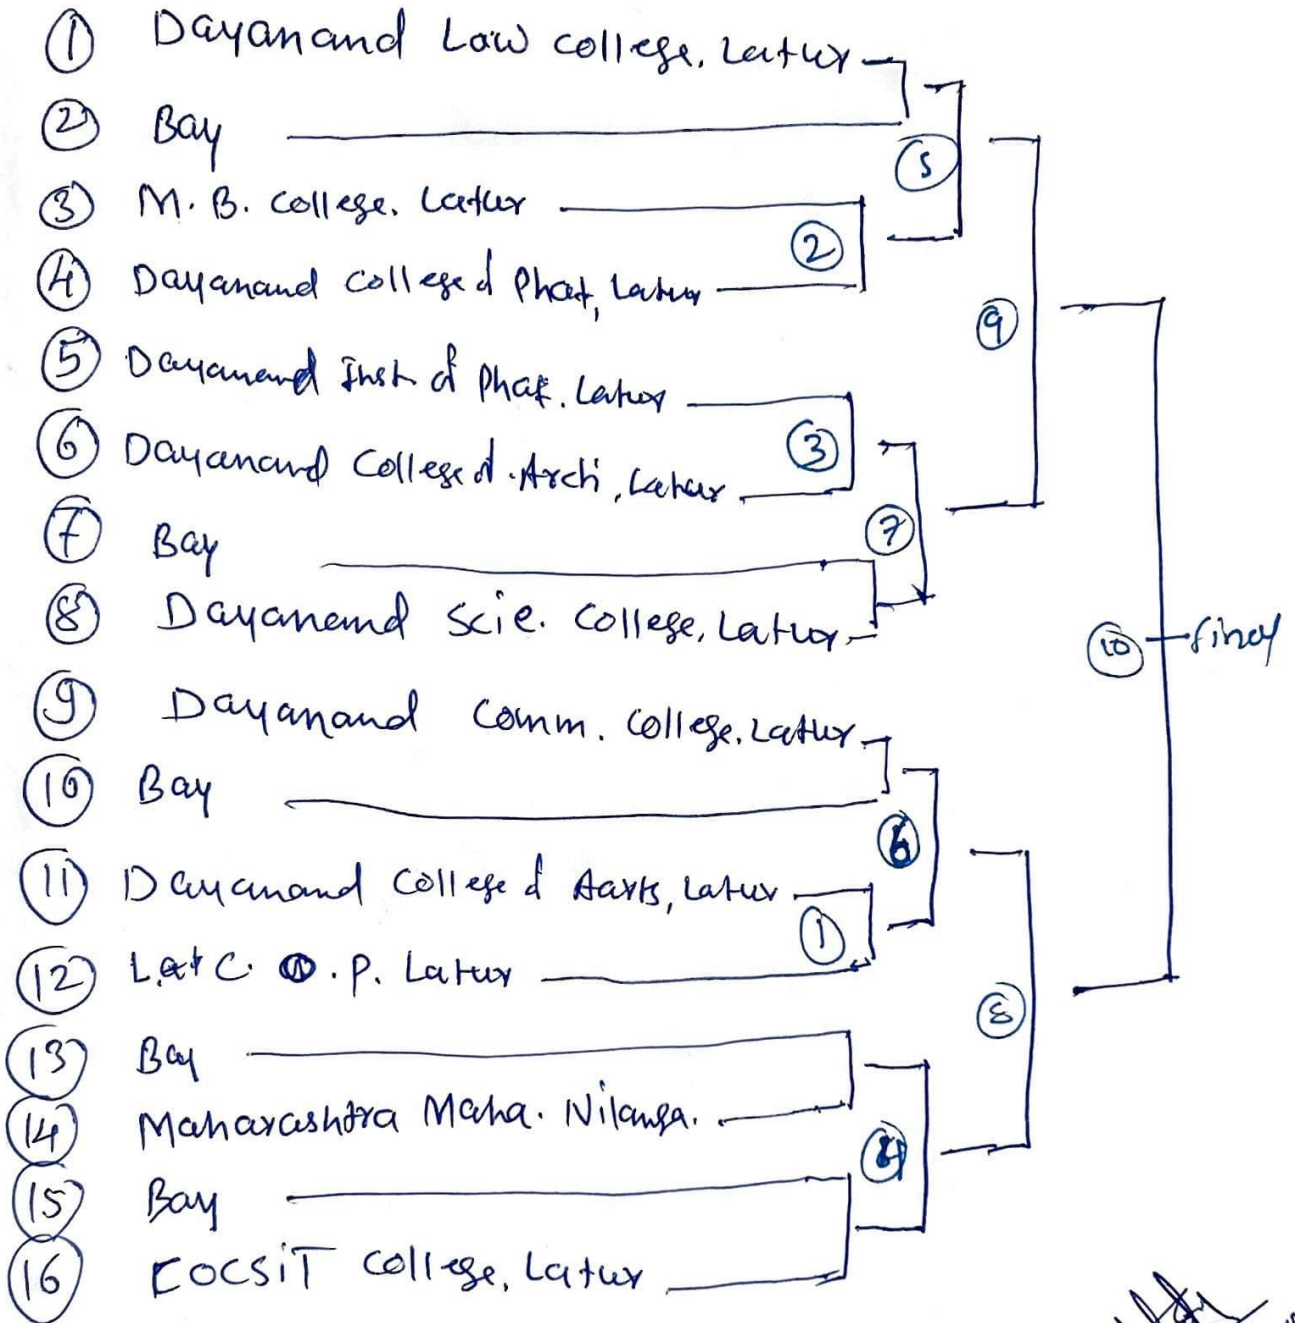 ① Dayanand Law college. Latur
② Bay
③ M. B. college. Latur
④ Dayanand College of Phar, Latur
⑤ Dayanand Inst of Phar. Latur
⑥ Dayanand College of Arch, Latur
⑦ Bay
⑧ Dayanand Scie. College, Latur
⑨ Dayanand Comm. College, Latur
⑩ Bay
⑪ Dayanand College of Aarts, Latur
⑫ Lat C. P. Latur
⑬ Bay
⑭ Maharashtra Maha. Nilanga.
⑮ Bay
⑯ COCSIT College, Latur
⑤
②
⑨
③
⑦
⑩ final
⑥
①
⑧
④